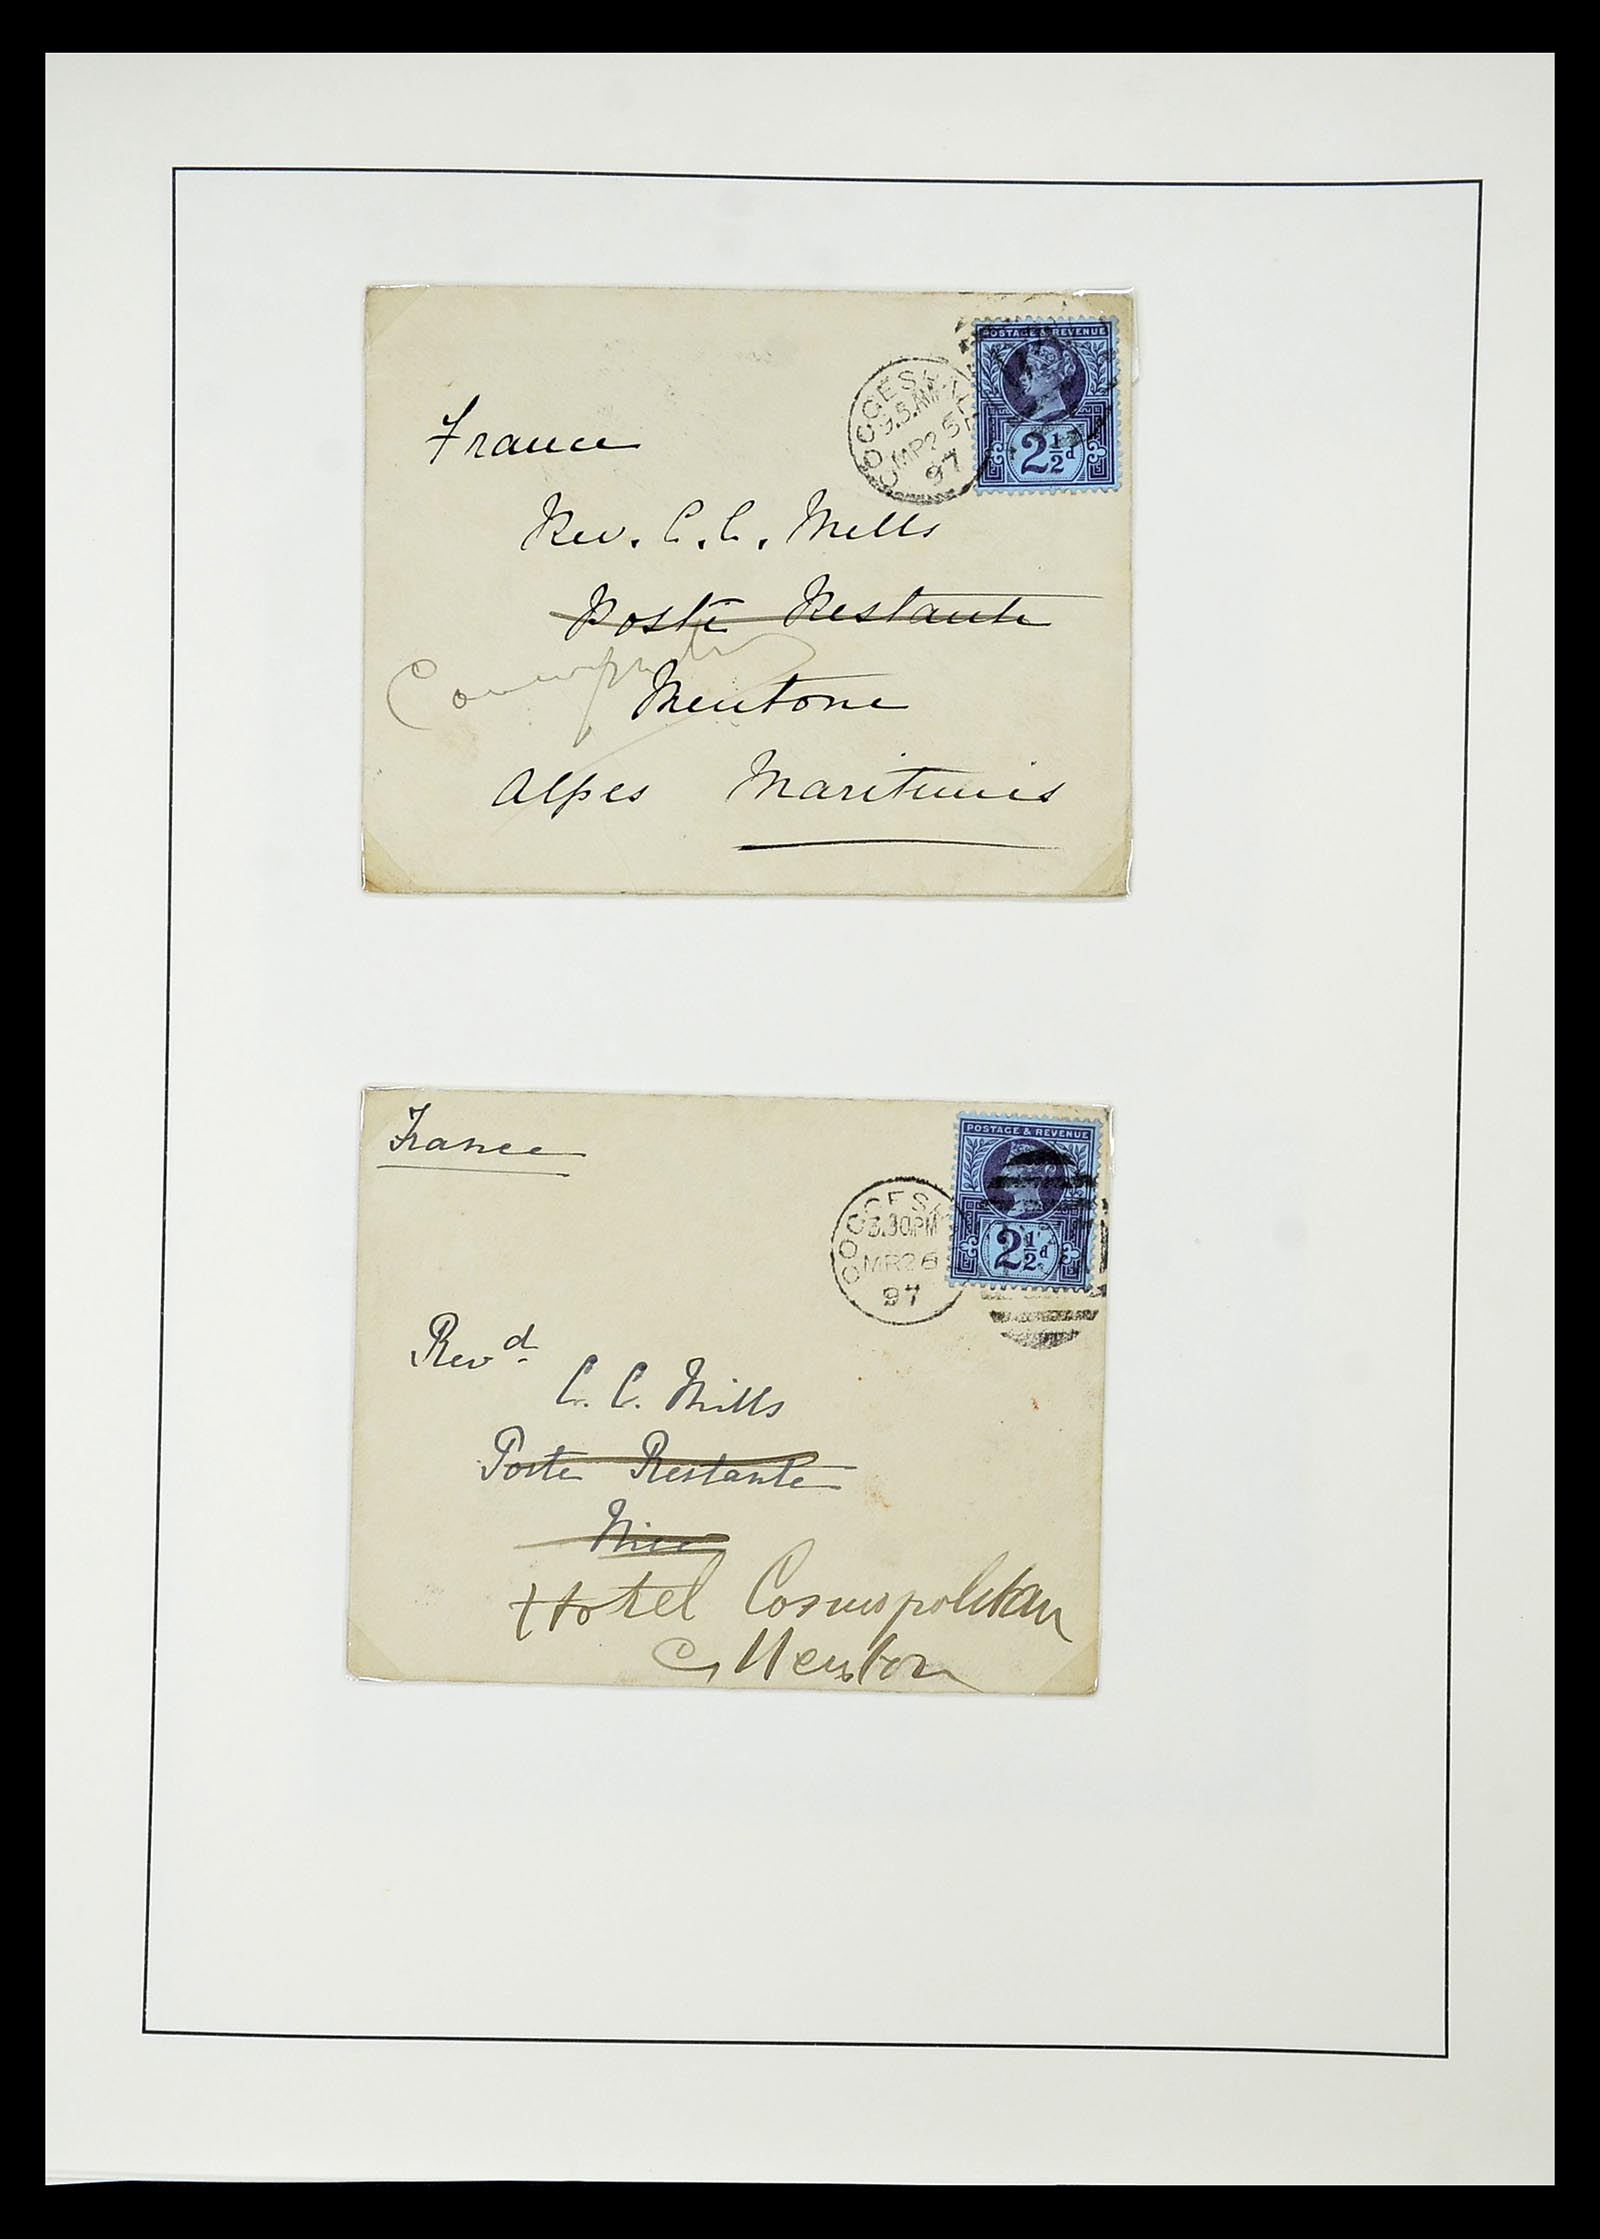 POSTAGE & REVENUE
COGGESHALL
9.5 AM
MR 25
97
2½d
France
Rev. C. C. Mills
Poste Restante
Mentone
Alpes Maritimes
France
POSTAGE & REVENUE
COGGESH
3.30PM
MR 26
97
2½d
Revd.
C. C. Mills
Poste Restante
Nice
Hotel Cosmopolitan
Menton